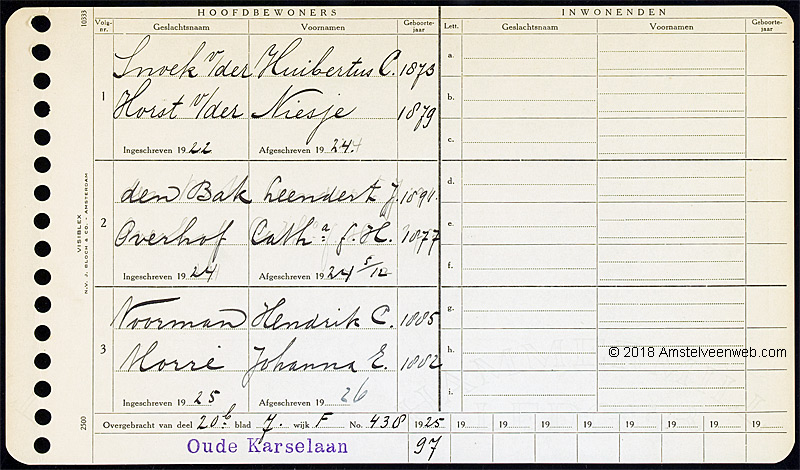 HOOFDBEWONERS INWONENDEN
Volg-nr. Geslachtsnaam Voornamen Geboorte-jaar Lett. Geslachtsnaam Voornamen Geboorte-jaar
10333
1
Snoek v/der Huibertus C. 1873 a.
Horst v/der Niesje 1879 b.
c.
Ingeschreven 1922 Afgeschreven 1924.
2
den Bak Leendert J. d.
Overhof Cath.a J. H. 1877 e.
f.
Ingeschreven 1924 Afgeschreven 1924 5/12
VISIBLEX
N.V. J. BLOCH & CO. - AMSTERDAM
3
Noorman Hendrik C. 1885 g.
Morré Johanna E. 1882 h.
i.
© 2018 Amstelveenweb.com
Ingeschreven 1925 Afgeschreven 1926
2500
Overgebracht van deel 20b blad 7. wijk F No. 438 1925 19 19 19 19 19 19 19
Oude Karselaan 97